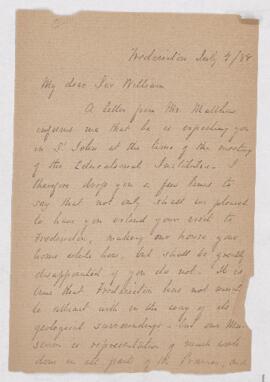 Fredericton July 4/88
My dear Sir William
A letter from Mr. Matthew
informs me that he is expecting you
in St. John at the time of the meeting
of the Educational Institute. I
therefore drop you a few lines to
say that not only shall be pleased
to have you extend your visit to
Fredericton, making our house your
home while here, but shall be greatly
disappointed if you do not. It is
true that Fredericton has not much
to attract with in the way of its
geological surroundings, but our Mu-
seum is representative of much work
done in all parts of the Province, and